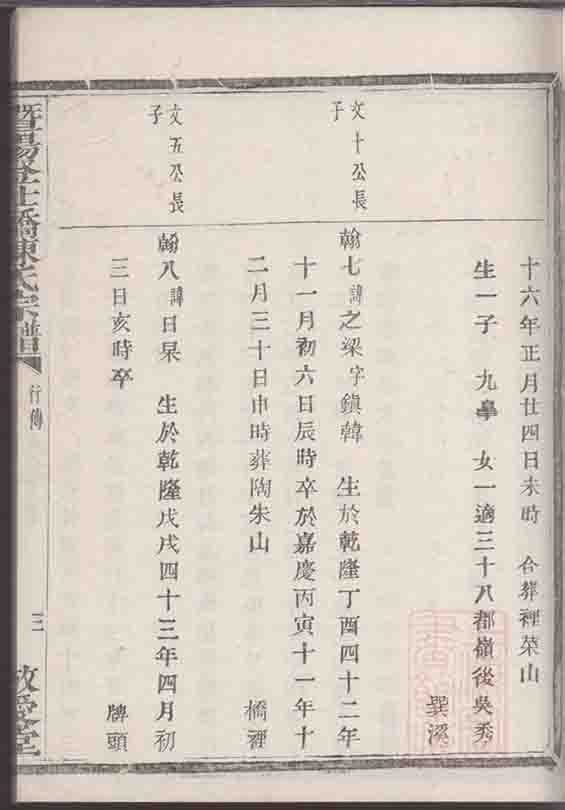 十六年正月廿四日未時 合葬裡菜山
生一子 九皐 女一適三十八都嶺後吳秀
巽溪
文十公長
子
翰七諱之梁字鎮韓 生於乾隆丁酉四十二年
十一月初六日辰時卒於嘉慶丙寅十一年十
二月三十日申時葬陶朱山
橋裡
文五公長
子
翰八諱日杲 生於乾隆戊戌四十三年四月初
三日亥時卒
牌頭
暨陽 橋陳氏宗譜
行傳
三